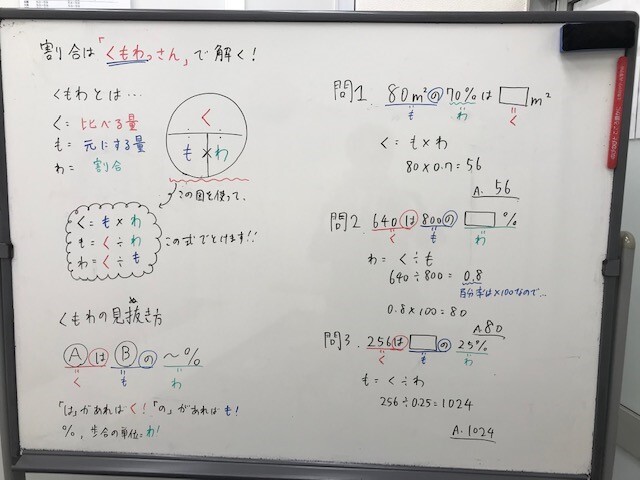 割合は「くもわっさん」で解く!
くもわとは…
く= 比べる量
も= 元にする量
わ= 割合
く
も×わ
この図を使って、
く=も×わ
も=く÷わ
わ=く÷も
この式でとけます!!
くもわの見抜き方
Ⓐ は Ⓑ の 〜%
く も わ
「は」があればく!「の」があればも!
%、歩合の単位=わ!
問1. 80m²の70%は□m²
も わ く
く=も×わ
80×0.7=56
A. 56
問2. 640は800の□%
く も わ
わ=く÷も
640÷800=0.8
百分率は×100なので…
0.8×100=80
A.80
問3. 256は□の25%
く も わ
も=く÷わ
256÷0.25=1024
A. 1024